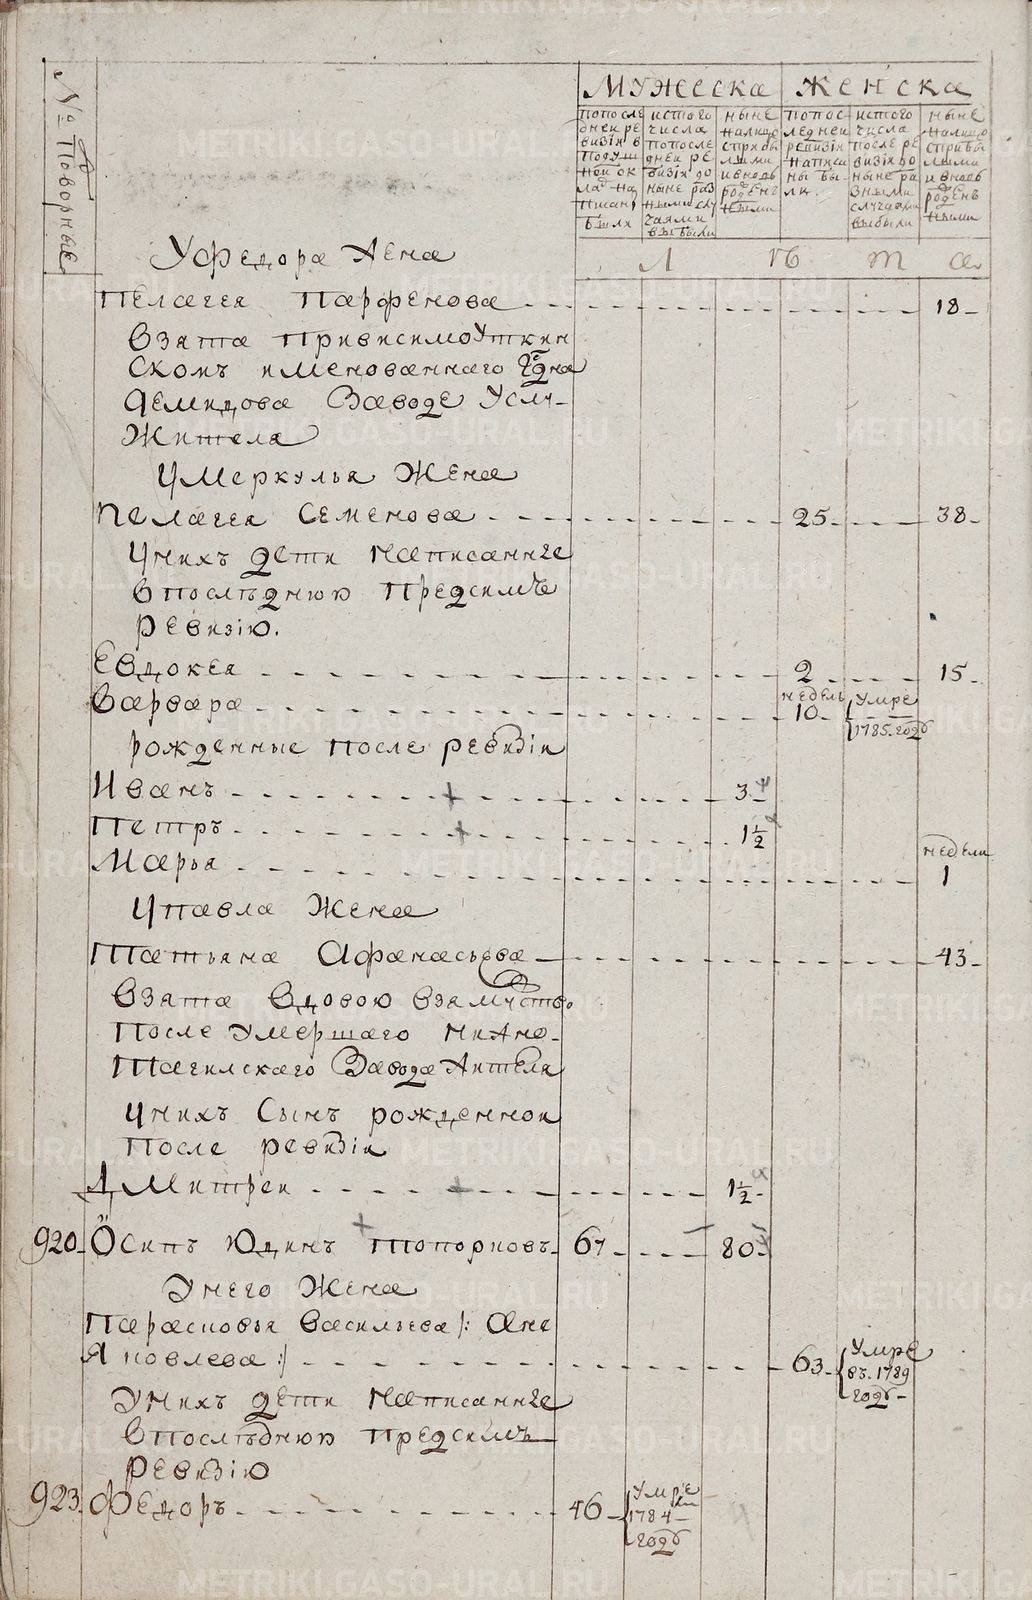 № Подворные
МУЖЕСКА
ЖЕНСКА
попосле
днеи ре
визiи в
подуш
нои ок
лад на
писан
были
истого
числа
попосле
днеи ре
визiи до
ныне раз
ными слу
чаями
выбыли
ныне
налицо
сприбы
лыми
ивновь
рожден
ными
попос
леднеи
ревизiи
написа
ны бы
ли
истого
числа
после ре
визiи до
ныне ра
зными
случаями
выбыли
ныне
налицо
сприбы
лыми
ивновь
рожден
ными
Л ѣ т а
Уфедора жена
Пелагея Парфенова 18
взята привисимоУткин
скомъ именованнаго Гдна
демидова Заводе Услу-
жителя
Умеркулья Жена
Пелагея Семенова 25 38
Унихъ дети написанные
впослѣднюю предсимъ
ревизiю.
Евдокея 2 15
недель Умре
варвара 10 1785 году
рожденные после ревизiи
Иванъ 3
Петръ 1½
недели
Марья 1
Упавла Жена
Татьяна Афанасьева 43
взята вдовою взамуство
после умершаго нижно-
Тагилскаго Завода жителя
Унихъ Сынъ рожденнои
после ревизiи
Дмитреи 1½
920 Осипъ Юдинъ Топорковъ 67 80
Унего Жена
Парасковья васильева /: Ане
Яковлева :/ 63 Умре
въ 1789
году
Унихъ дети написанные
впослѣднюю предсимъ
ревизiю
923 Федоръ 46 Умре
1784
году
METRIKI.GASO-URAL.RU